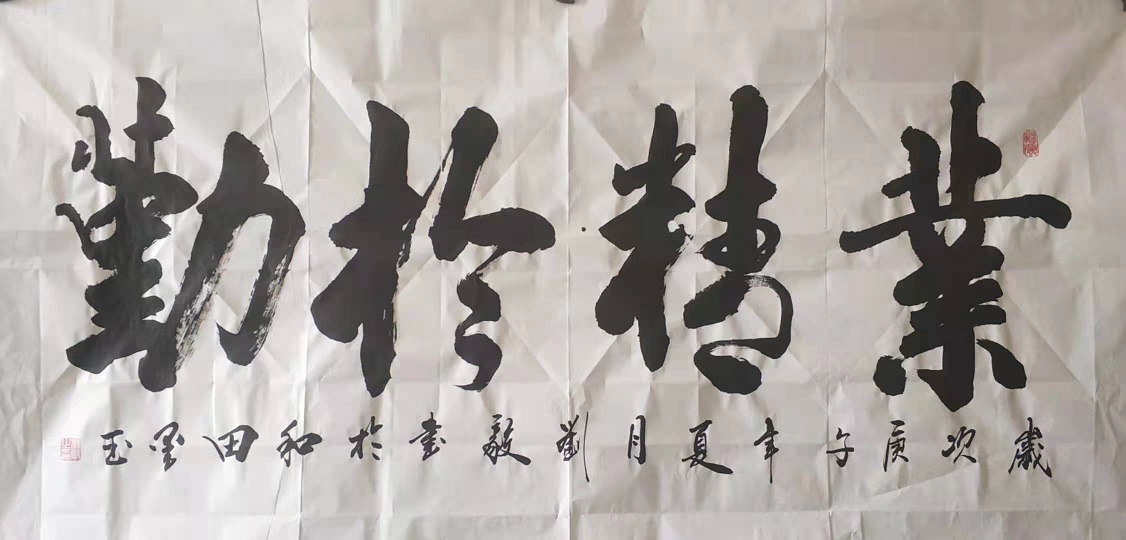 業精於勤
歲次庚子年夏月劉毅書於和田墨玉